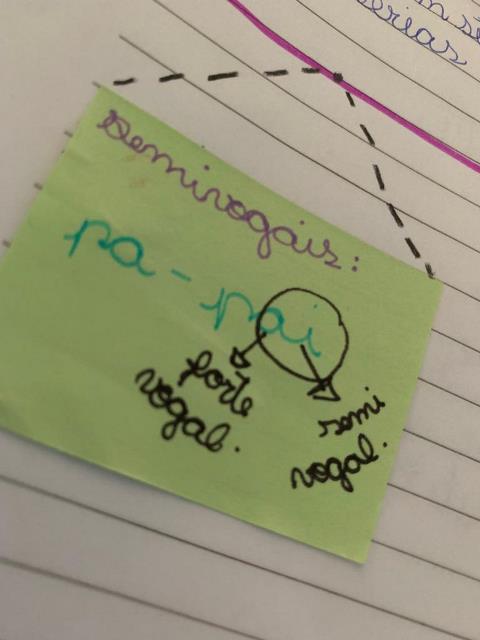 érias
semivogais:
pa-pai
forte
vogal.
semi
vogal.